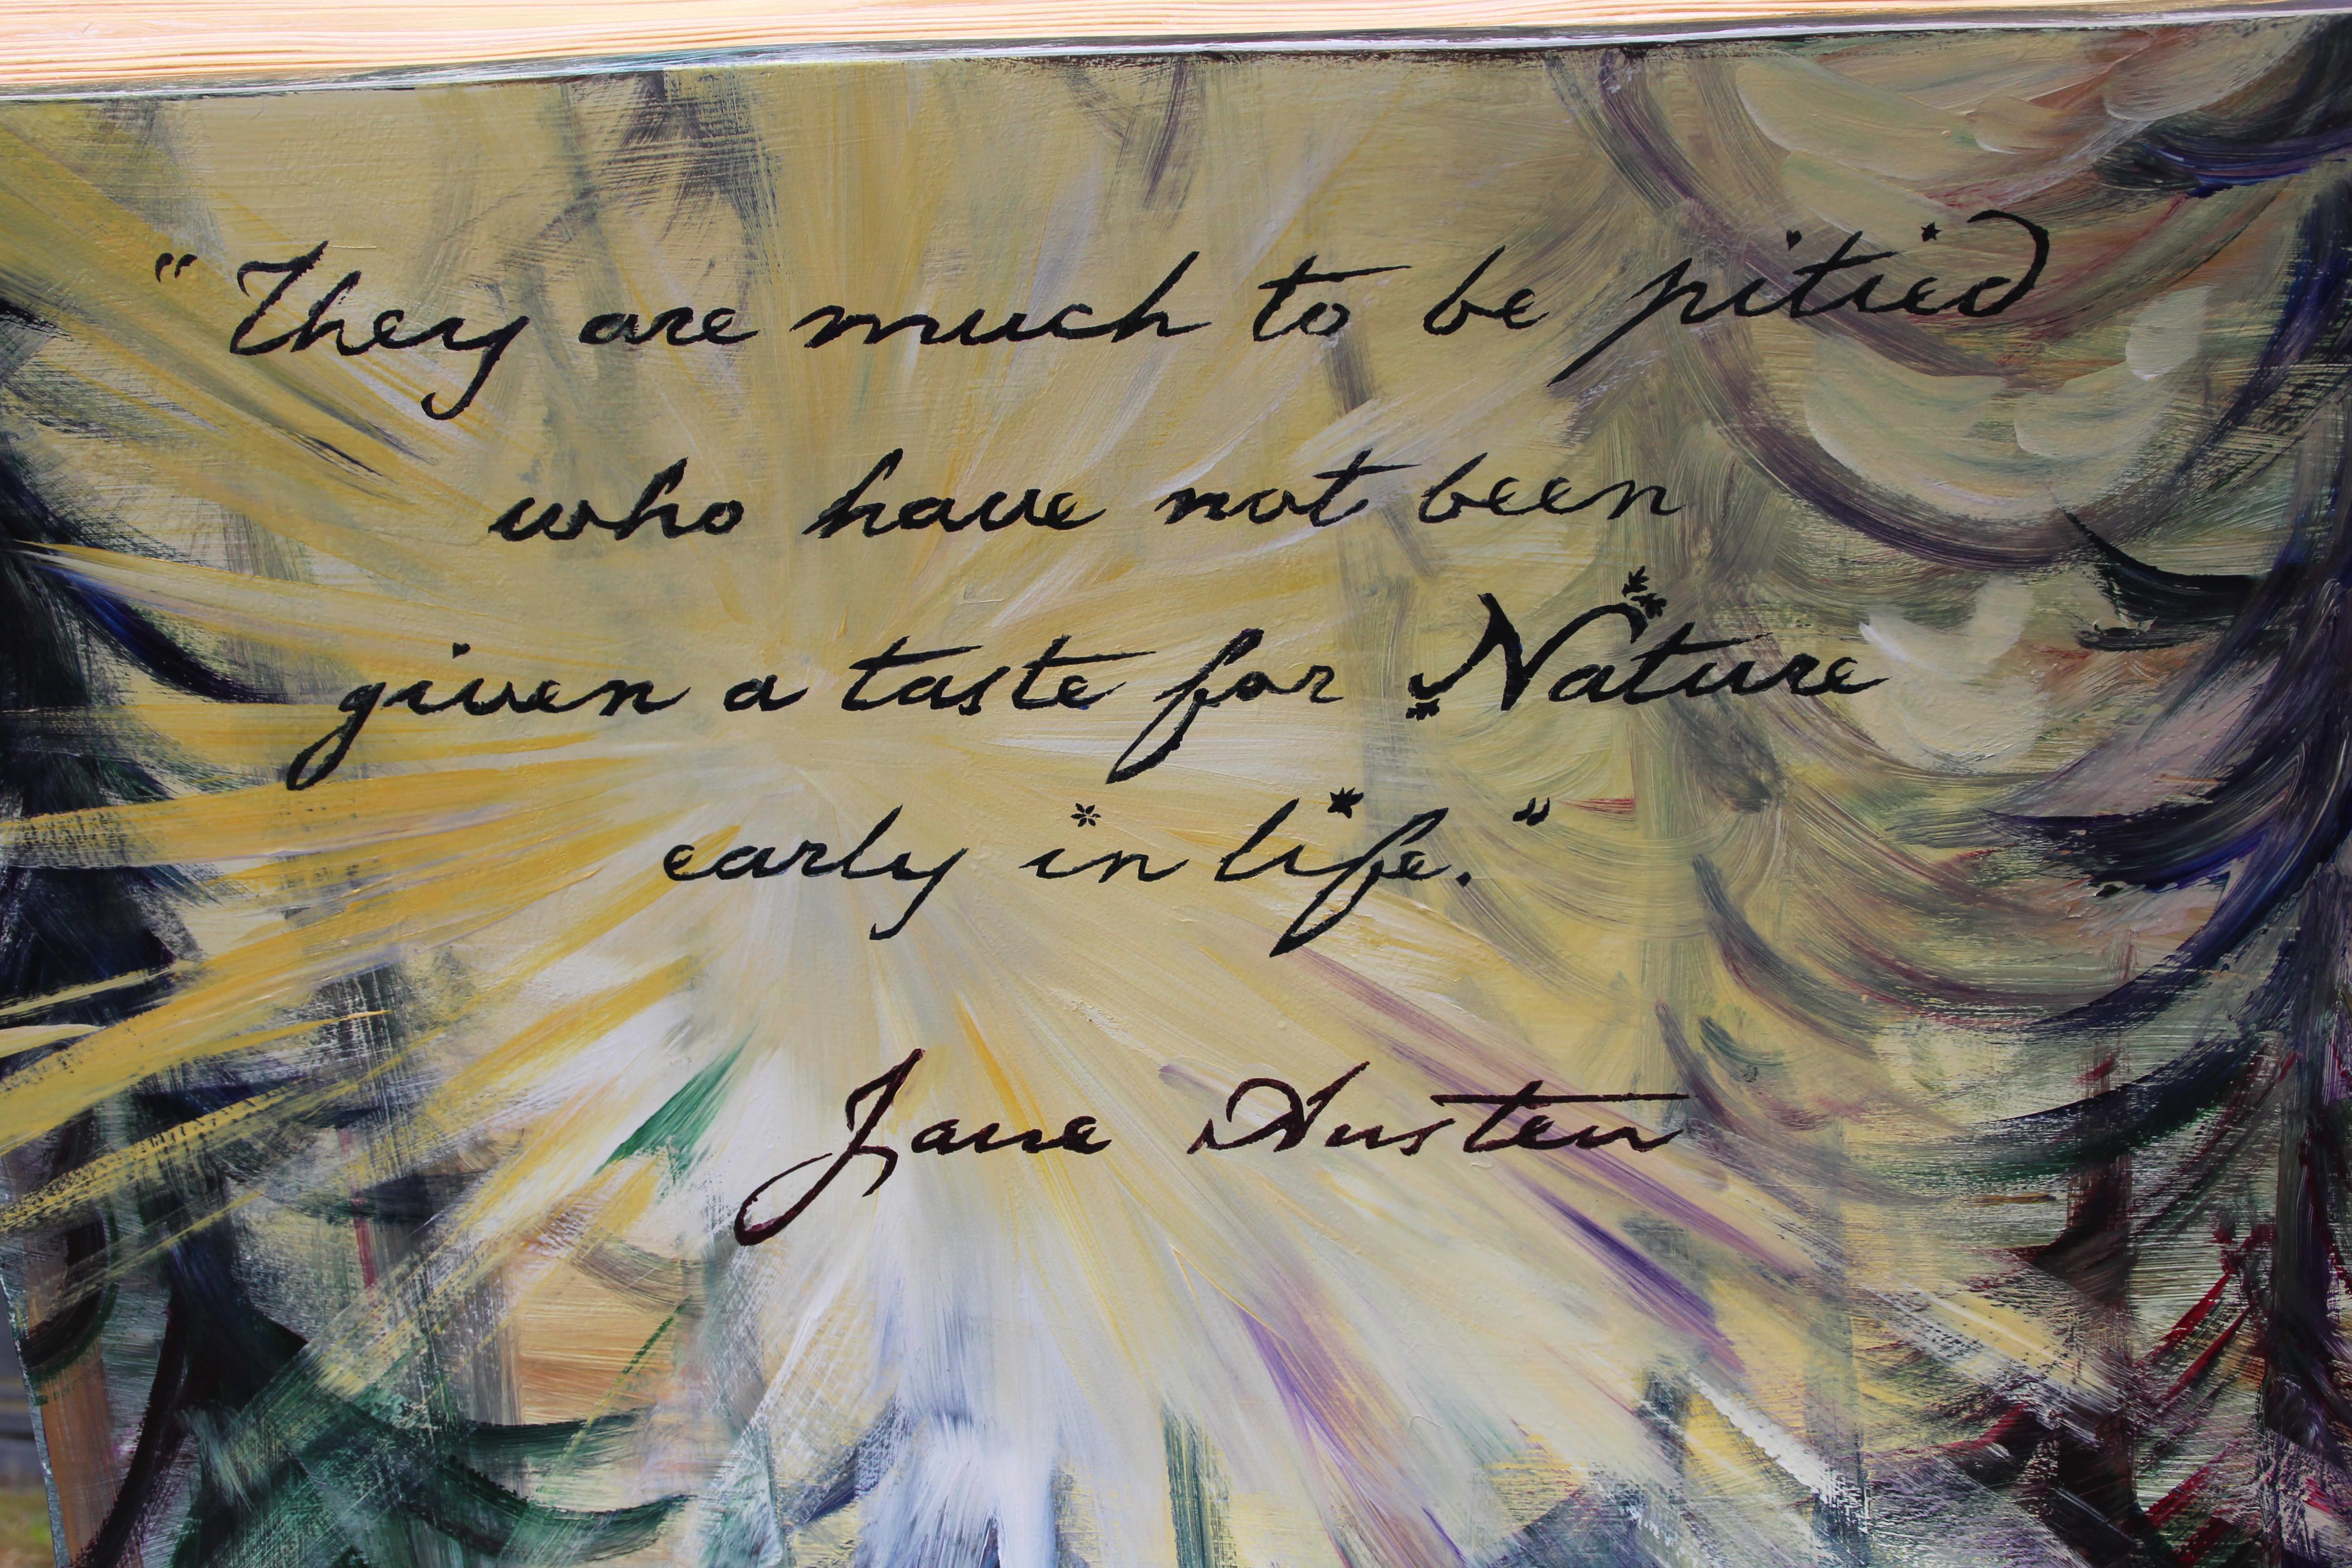 "They are much to be pitied
who have not been
given a taste for Nature
early in life."
Jane Austen